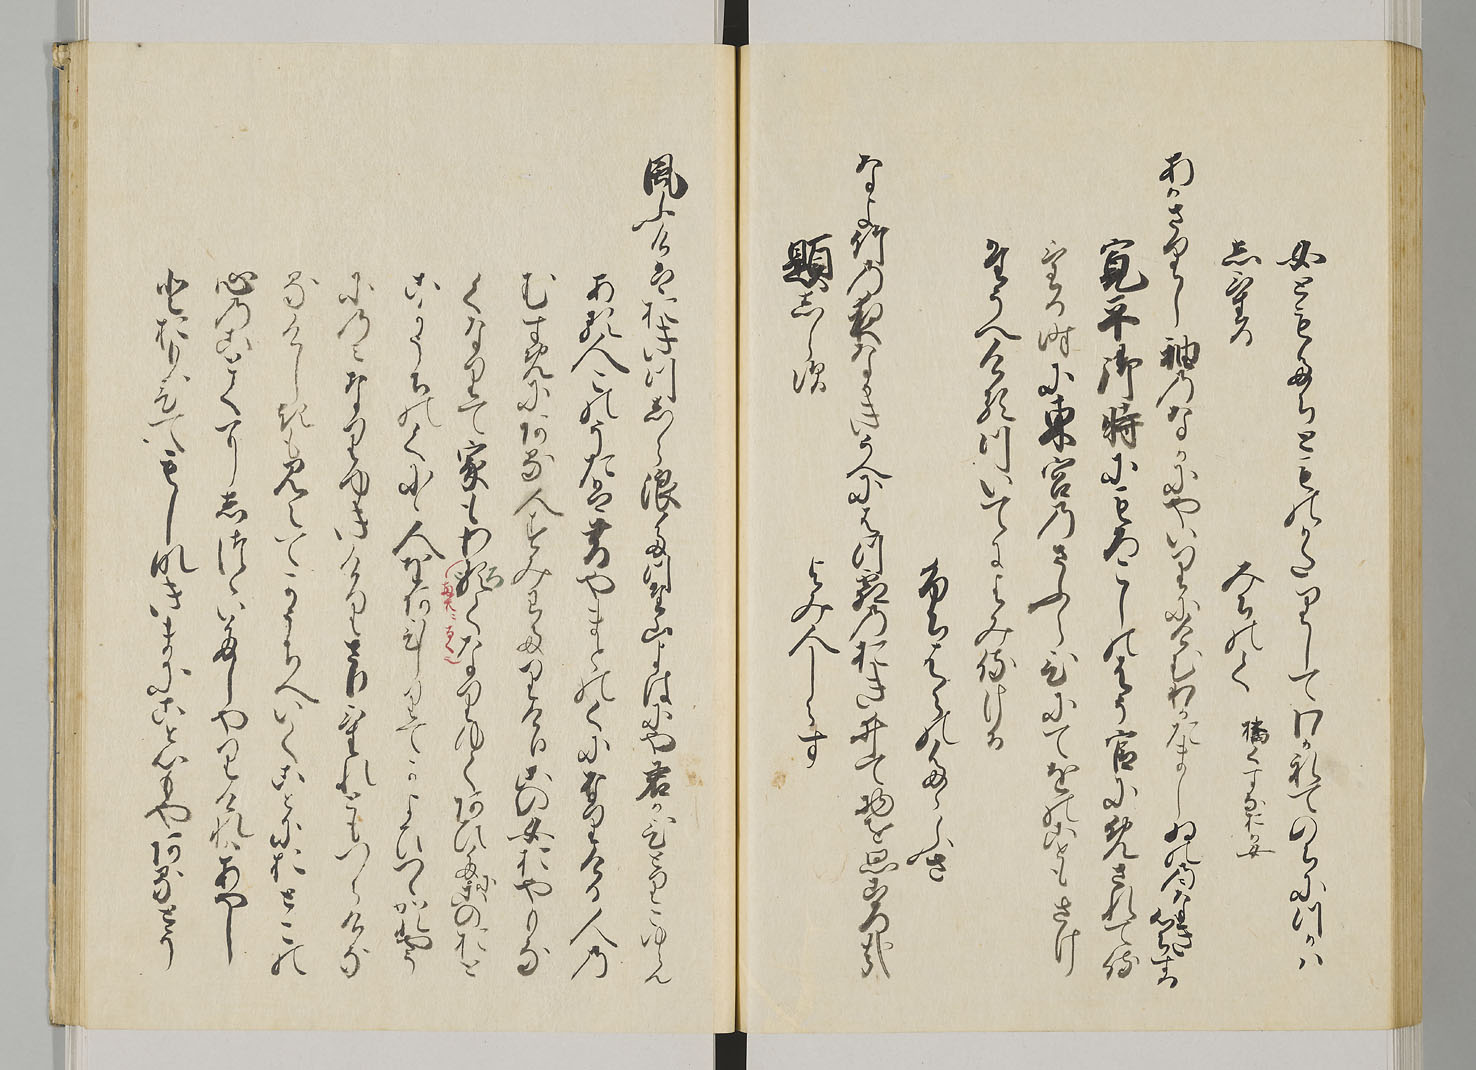 女ともたちとものかたりしてわかれてのちにつかは
しける
みちのく 橘くすなおか女
あかさりし袖のなかにやいりにけむわかたましひのなき心ちする
寛平御時にもろこしのはう官にめされて侍
ける時に東宮のさふらひにてをのこともさけ
たうへけるついてによみ侍ける
ふちはらのたゝふさ
なよ竹の夜なかきうへにはつ霜のおき井て物を思ころ哉
題しらす
よみ人しらす
風ふけはおきつしら浪たつた山よはにや君かひとりこゆらん
ある人このうたは昔やまとのくになりける人の
むすめにある人すみわたりけりこの女おやもな
くなりて家もわろくなりゆくあひたこのおと
こかうちのくにに人をあひしりてかよひつゝかれやう
にのみなりゆきけりさりけれともつらけな
るけしきも見えてかうちへいくことにおとこの
心のことくにしつゝいたしやりけれはあやし
とおもひてもしなきまにこと心もやあるとう